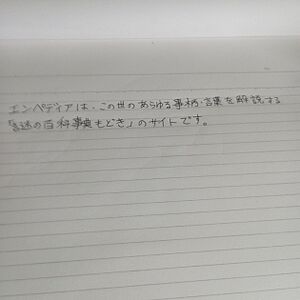 エンペディアは、この世のあらゆる事柄・言葉を解説する
百科事典もどき」のサイトです。